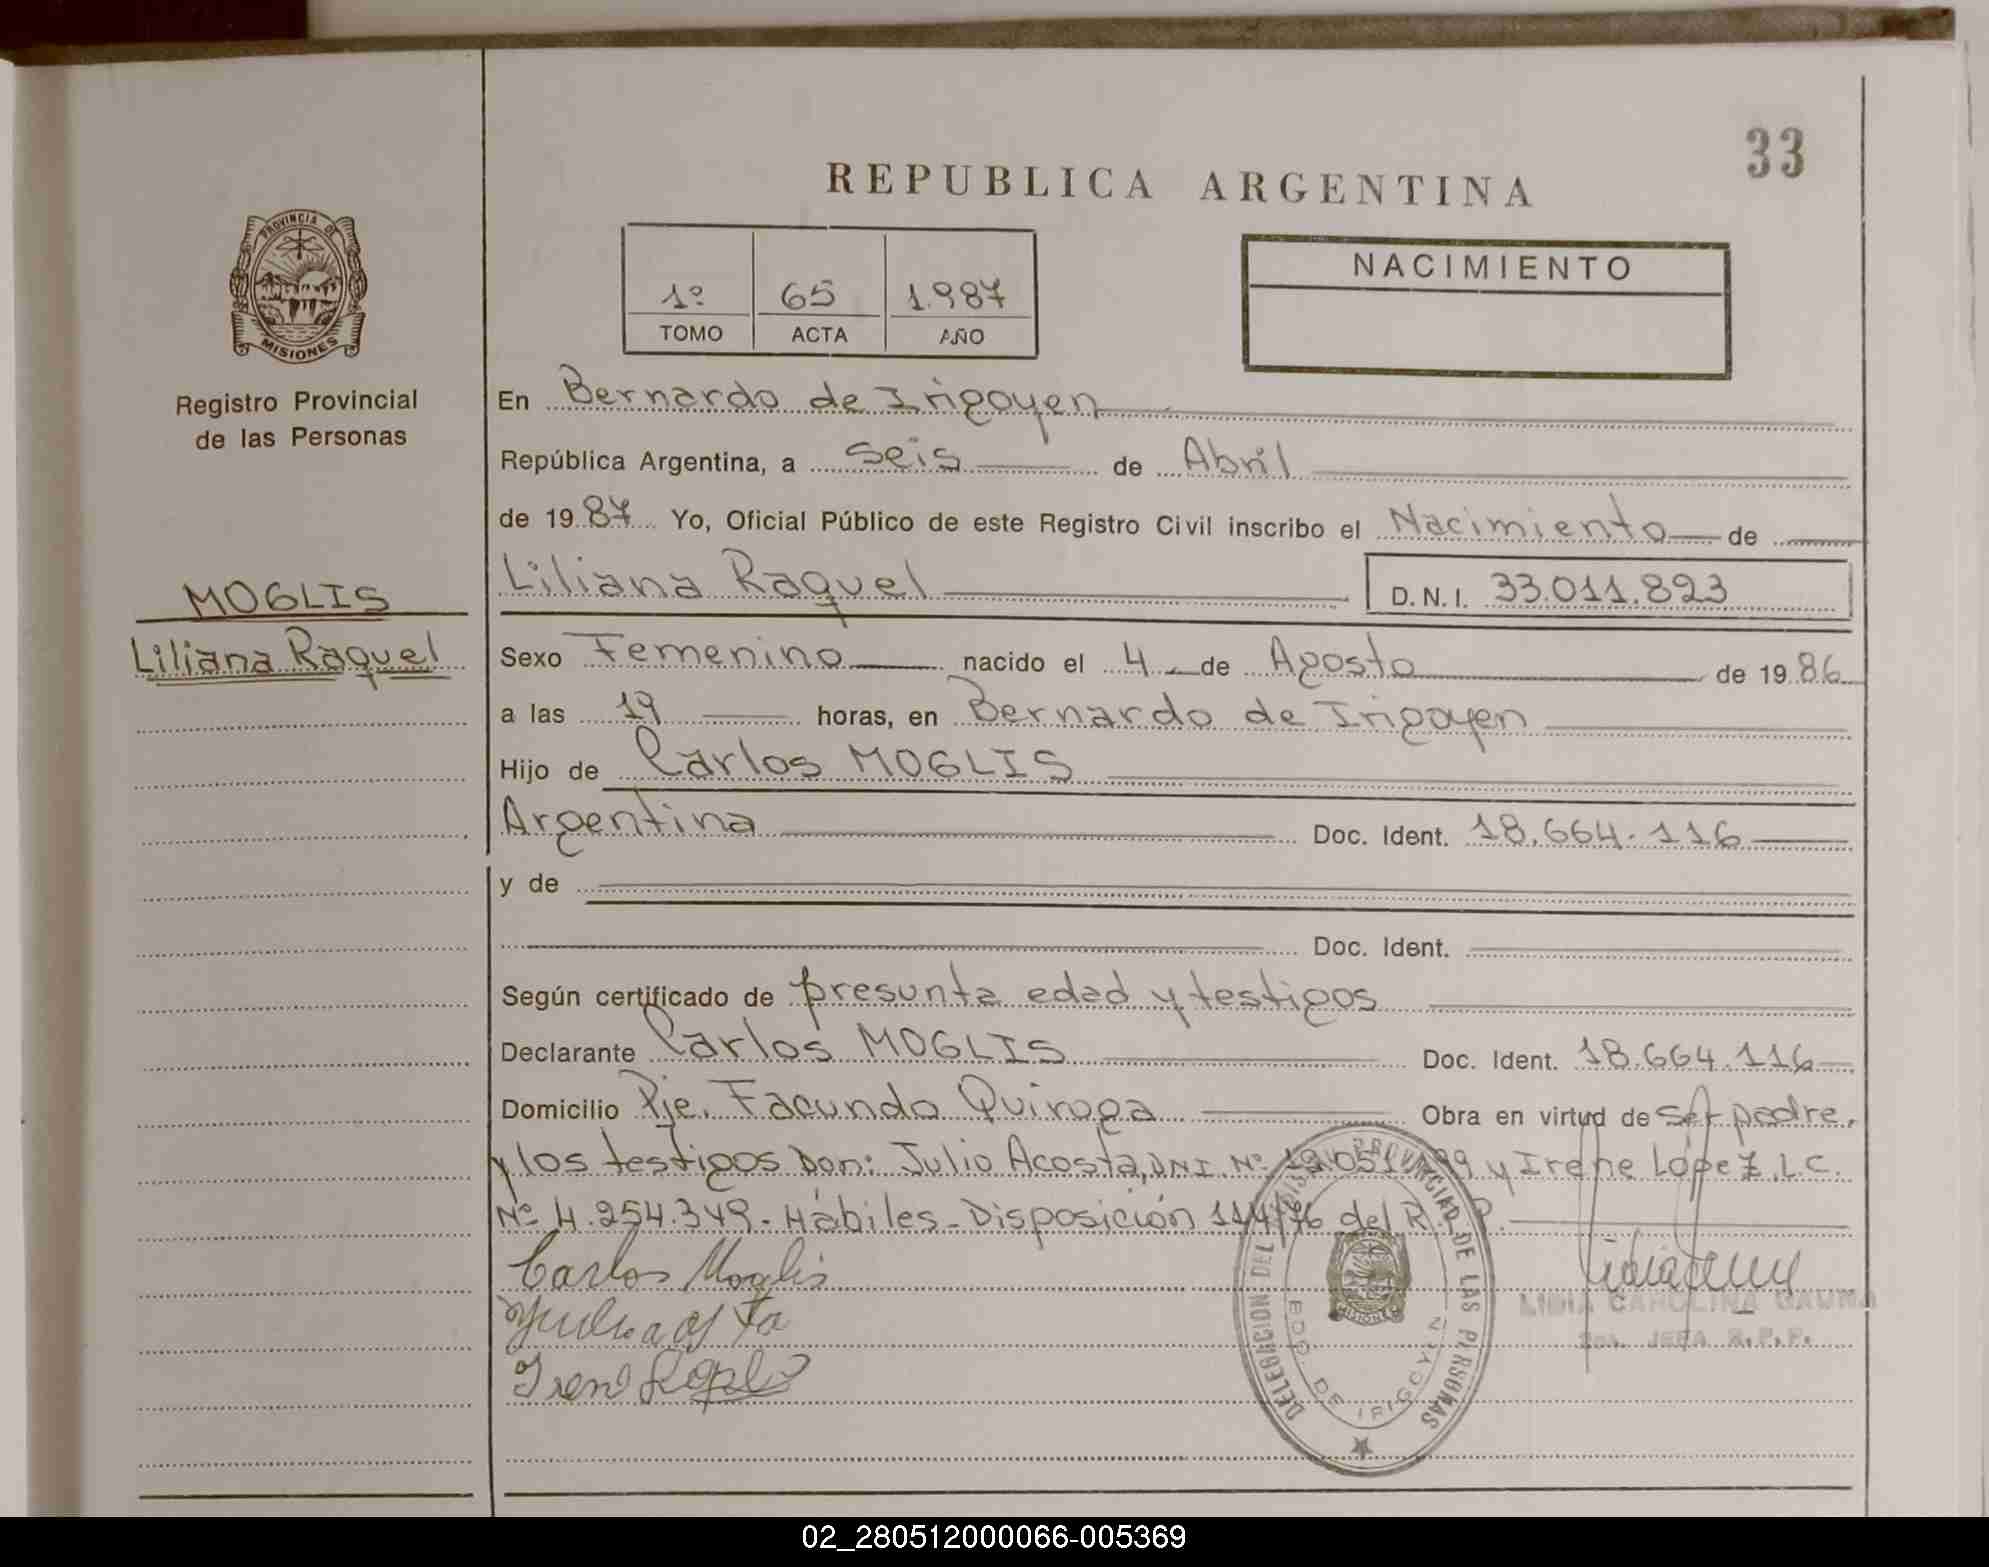 33
REPUBLICA ARGENTINA
PROVINCIA DE
MISIONES
Registro Provincial
de las Personas
1º 65 1.987
TOMO ACTA AÑO
NACIMIENTO
En Bernardo de Irigoyen
República Argentina, a seis de Abril
de 1987 Yo, Oficial Público de este Registro Civil inscribo el Nacimiento de
Liliana Raquel D.N.I. 33.011.823
MOGLIS
Liliana Raquel
Sexo Femenino nacido el 4 de Agosto de 1986
a las 19 horas, en Bernardo de Irigoyen
Hijo de Carlos MOGLIS
Argentina Doc. Ident. 18.664.116
y de
Doc. Ident.
Según certificado de presunta edad y testigos
Declarante Carlos MOGLIS Doc. Ident. 18.664.116
Domicilio Pje. Facundo Quiroga Obra en virtud de ser padre,
y los testigos Don: Julio Acosta, DNI. Nº y Irene Lopez, L.C.
Nº 4.254.349.- Hábiles - Disposición 114/76 del R.
Carlos Moglis
Irene Lopez
DELEGACION DEL PROVINCIAL DE LAS PERSONAS
BDO. DE IRIGOYEN
MISIONES
LIDIA CAROLINA GAUNA
JEFA R.P.P.
02_280512000066-005369